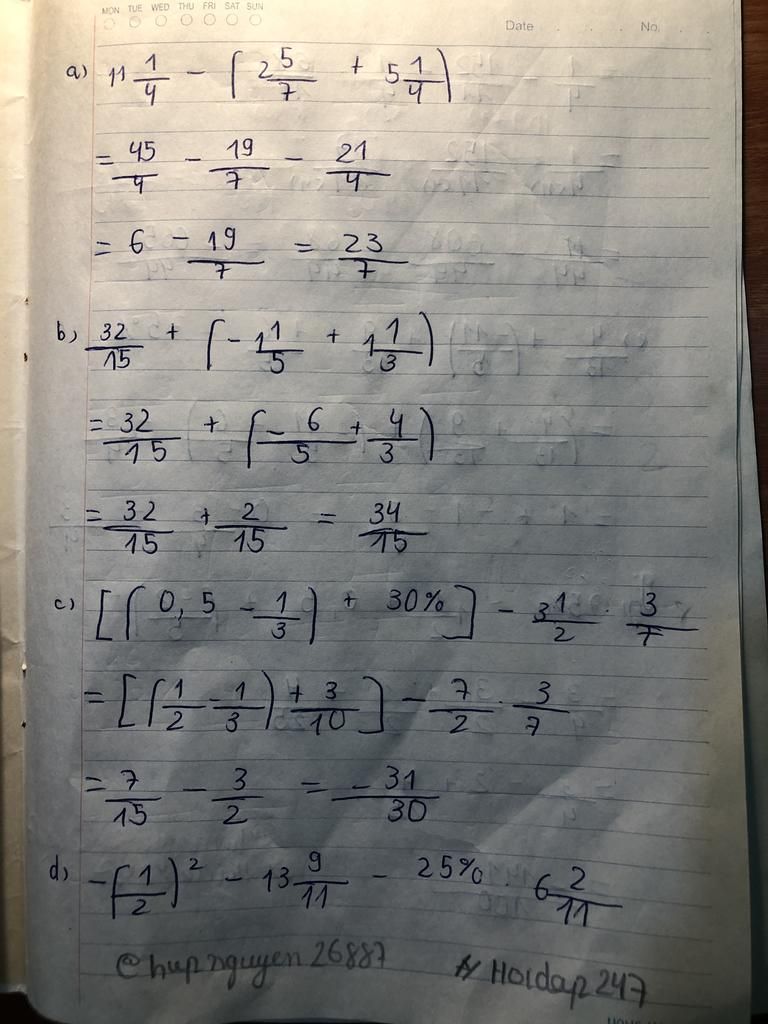 MON TUE WED THU FRI SAT SUN
Date No.
a) 11 1/4 - ( 2 5/7 + 5 1/4 )
= 45/4 - 19/7 - 21/4
= 6 - 19/7 = 23/7
b) 32/15 + ( -1 1/5 + 1 1/3 )
= 32/15 + ( -6/5 + 4/3 )
= 32/15 + 2/15 = 34/15
c) [ ( 0,5 - 1/3 ) + 30% ] - 3 1/2 . 3/7
= [ ( 1/2 - 1/3 ) + 3/10 ] - 7/2 . 3/7
= 7/15 - 3/2 = -31/30
d) -( 1/2 )² - 13 9/11 - 25% . 6 2/11
@hupnguyen26887 Hoidap247